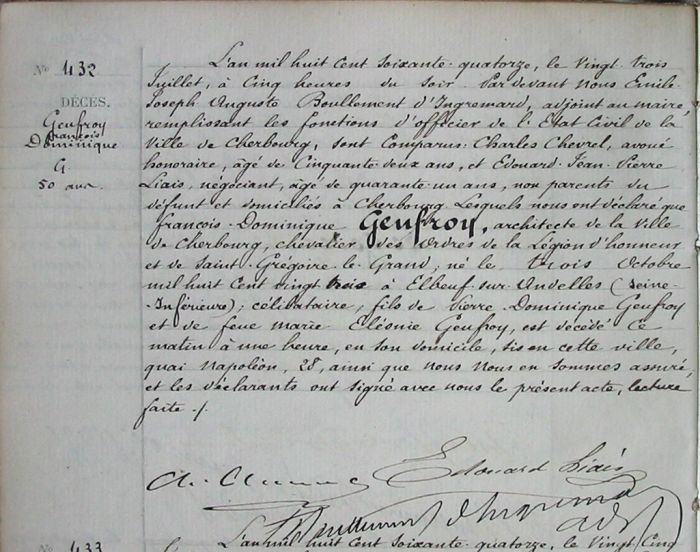 No 432
DÉCES.
Geufroy
François
Dominique
G.
50 ans.
L'an mil huit Cent soixante-quatorze, le Vingt trois
Juillet, à Cinq heures du Soir. Par devant Nous Emile-
Joseph Auguste Boullement d'Ingremard, adjoint au maire,
remplissant les fonctions d'officier de l'Etat Civil de la
Ville de Cherbourg, sont Comparus Charles Chevrel, avoué
honoraire, âgé de Cinquante deux ans, et Edouard Jean Pierre
Liais, négociant, âgé de quarante un ans, non parents du
défunt et domiciliés à Cherbourg Lesquels nous ont déclaré que
françois-Dominique Geufroy, architecte de la Ville
de Cherbourg, chevalier des ordres de la Légion d'honneur
et de Saint-Grégoire-le-Grand, né le trois Octobre
mil huit Cent vingt trois à Elbeuf-sur-Andelles (Seine-
-Inférieure); célibataire, fils de Pierre Dominique Geufroy
et de feue marie Eléonie Geufroy, est décédé Ce
matin à une heure, en son domicile, sis en cette ville,
quai Napoléon, 28, ainsi que nous nous en sommes assuré,
et les déclarants ont signé avec nous le présent acte, lecture
faite ./.
Edouard Liais
Boullement d'Ingremard
adj
No 433
L'an mil huit Cent soixante-quatorze, le Vingt Cinq